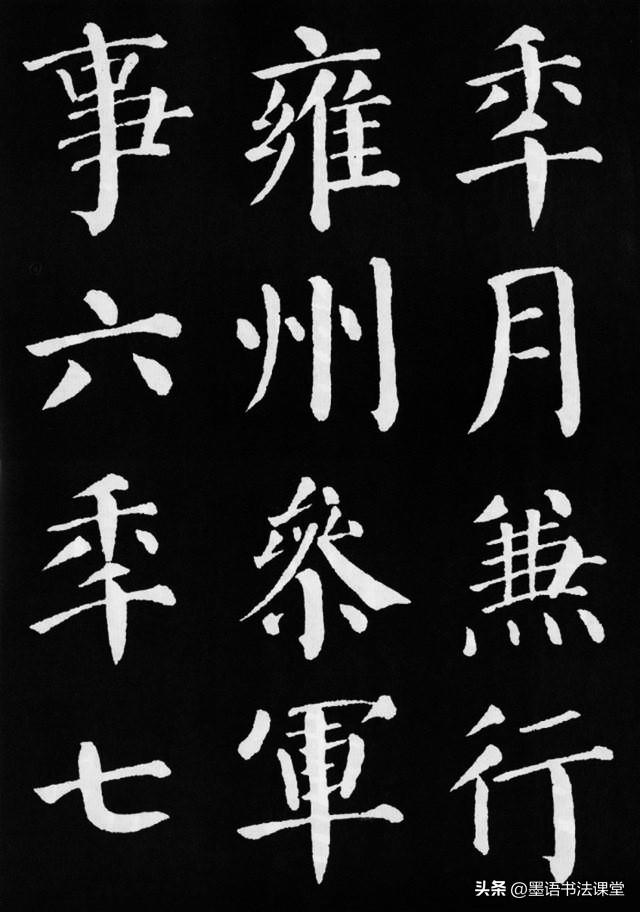 秊月兼行
雍州叅軍
事六秊七
头条 @墨语书法课堂